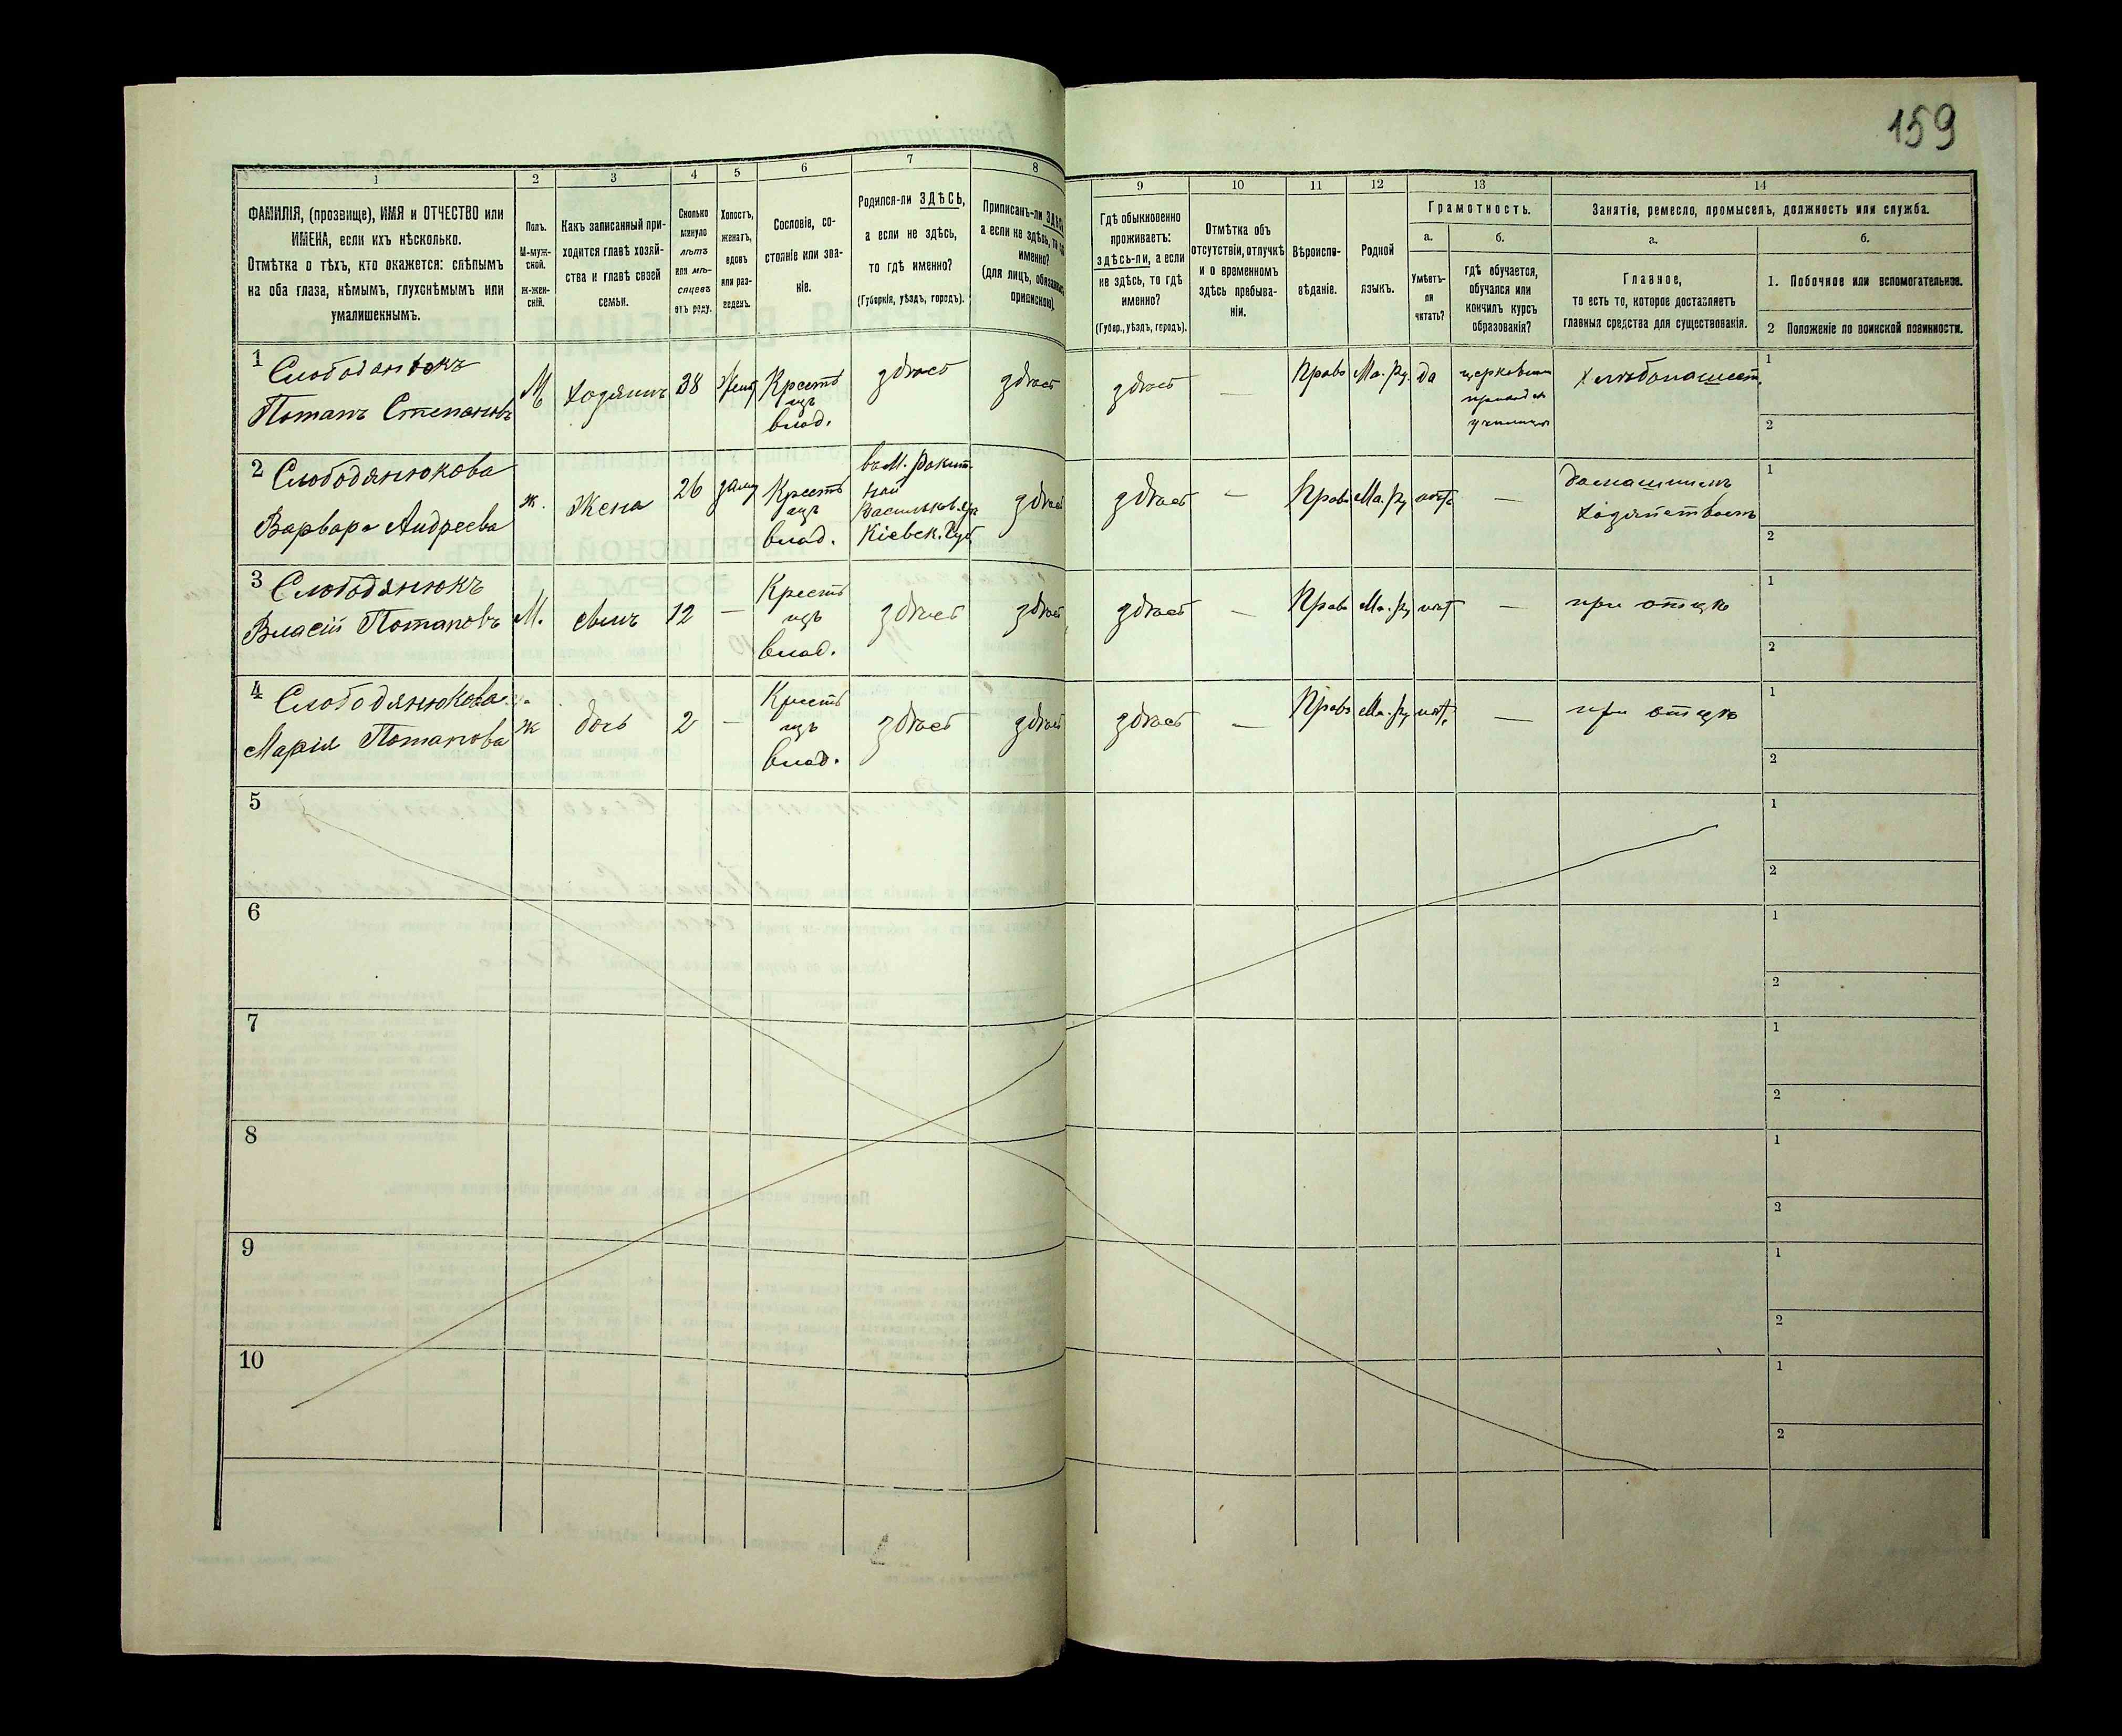 159
1
2
3
4
5
6
7
8
9
10
11
12
13
14
ФАМИЛІЯ, (прозвище), ИМЯ и ОТЧЕСТВО или
ИМЕНА, если ихъ нѣсколько.
Отмѣтка о тѣхъ, кто окажется: слѣпымъ
на оба глаза, нѣмымъ, глухонѣмымъ или
умалишеннымъ.
Полъ.
М-муж-
ской.
Ж-жен-
скій.
Какъ записанный при-
ходится главѣ хозяй-
ства и главѣ своей
семьи.
Сколько
минуло
лѣтъ
или мѣ-
сяцевъ
отъ роду.
Холостъ,
женатъ,
вдовъ
или раз-
веденъ.
Сословіе, со-
стояніе или зва-
ніе.
Родился-ли ЗДѢСЬ,
а если не здѣсь,
то гдѣ именно?
(Губернія, уѣздъ, городъ).
Приписанъ-ли ЗДѢСЬ
а если не здѣсь, то гдѣ
именно?
(для лицъ, обязанныхъ
припискою).
Гдѣ обыкновенно
проживаетъ:
здѣсь-ли, а если
не здѣсь, то гдѣ
именно?
(Губер., уѣздъ, городъ).
Отмѣтка объ
отсутствіи, отлучкѣ
и о временномъ
здѣсь пребыва-
ніи.
Вѣроиспо-
вѣданіе.
Родной
языкъ.
Грамотность.
а.
б.
Умѣетъ-
ли
читать?
гдѣ обучается,
обучался или
кончилъ курсъ
образованія?
Занятіе, ремесло, промыселъ, должность или служба.
а.
б.
Главное,
то есть то, которое доставляетъ
главныя средства для существованія.
1. Побочное или вспомогательное.
2 Положеніе по воинской повинности.
1
Слободянюкъ
Потапъ Степановъ
М
хозяинъ
38
Жен.
Крестъ
изъ
влад.
здѣсь
здѣсь
здѣсь
—
Право
Ма. Ру.
да
церковно
приходск
училище
Хлѣбопашест.
1
2
2
Слободянюкова
Варвара Андреева
ж.
жена
26
замуж
Крестъ
изъ
влад.
въ М. Ракит-
ной
Васильков. уѣз
Кіевск. Губ.
здѣсь
здѣсь
—
Право
Ма. Ру
нѣтъ
—
домашнимъ
хозяйствомъ
1
2
3
Слободянюкъ
Власій Потаповъ
М.
сынъ
12
—
Крестъ
изъ
влад.
здѣсь
здѣсь
здѣсь
—
Право
Ма. Ру
нѣтъ
—
при отцѣ
1
2
4
Слободянюкова
Марія Потапова
ж
дочь
2
—
Крестъ
изъ
влад.
здѣсь
здѣсь
здѣсь
—
Право
Ма. Ру
нѣтъ
—
при отцѣ
1
2
5
1
2
6
1
2
7
1
2
8
1
2
9
1
2
10
1
2